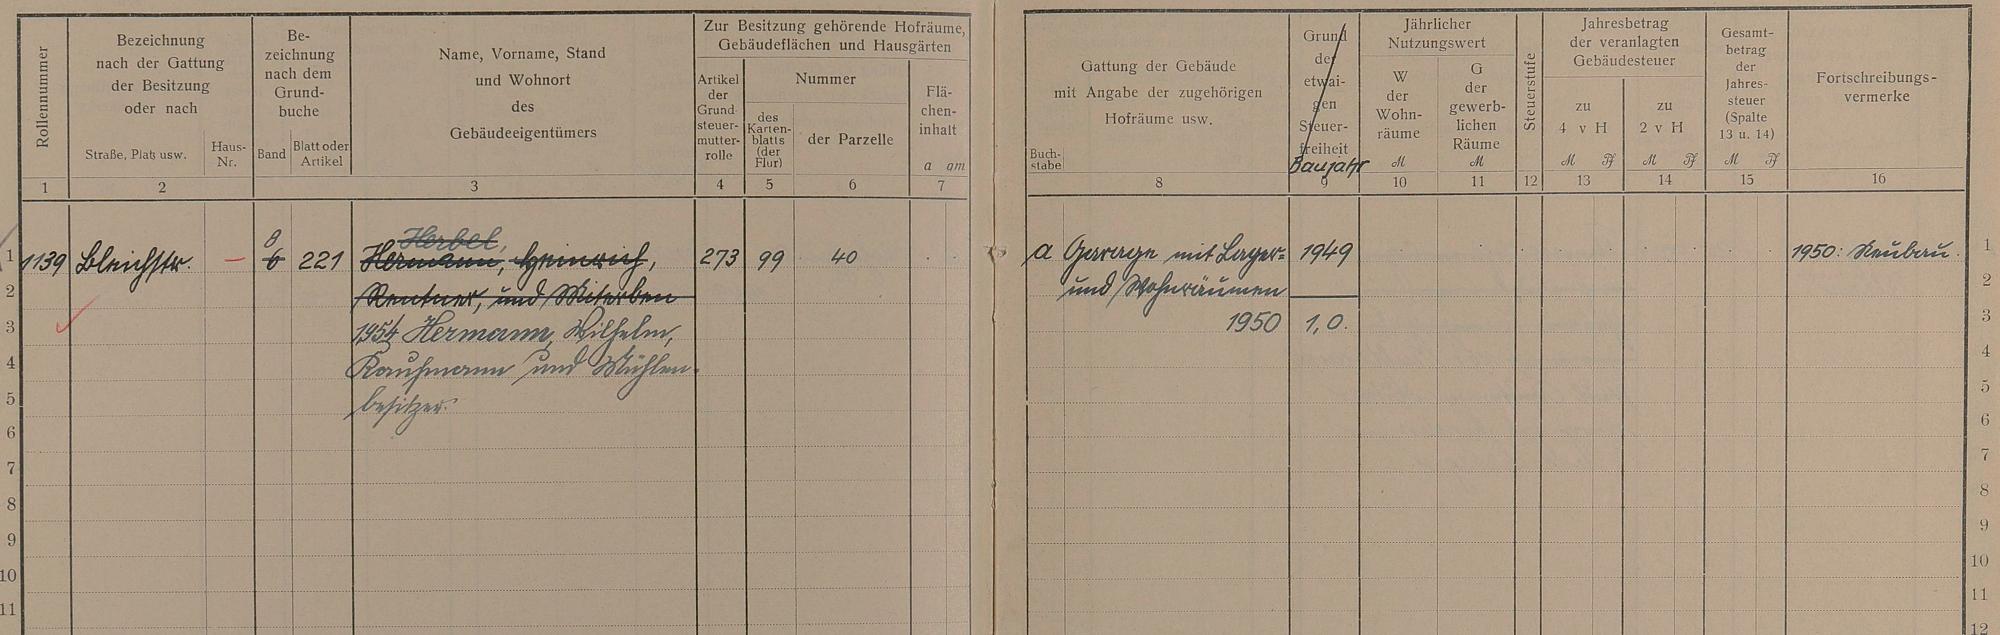 Rollennummer
Bezeichnung
nach der Gattung
der Besitzung
oder nach
Straße, Platz usw.
Haus-
Nr.
Be-
zeichnung
nach dem
Grund-
buche
Band
Blatt oder
Artikel
Name, Vorname, Stand
und Wohnort
des
Gebäudeeigentümers
Zur Besitzung gehörende Hofräume,
Gebäudeflächen und Hausgärten
Artikel
der
Grund-
steuer-
mutter-
rolle
Nummer
des
Karten-
blatts
(der
Flur)
der Parzelle
Flä-
chen-
inhalt
a qm
1 2 3 4 5 6 7
1 1139 Bleichstr. — 6 221 Hermann, Heinrich, 273 99 40
8
Herbel,
2 Rentner, und Miterben
3 1954 Hermann, Wilhelm,
4 Kaufmann und Mühlen-
5 besitzer.
6
7
8
9
10
11
Gattung der Gebäude
mit Angabe der zugehörigen
Hofräume usw.
Buch-
stabe
Grund
der
etwai-
gen
Steuer-
freiheit
Baujahr
Jährlicher
Nutzungswert
W
der
Wohn-
räume
M
G
der
gewerb-
lichen
Räume
M
Steuerstufe
Jahresbetrag
der veranlagten
Gebäudesteuer
zu
4 v H
M Pf
zu
2 v H
M Pf
Gesamt-
betrag
der
Jahres-
steuer
(Spalte
13 u. 14)
M Pf
Fortschreibungs-
vermerke
8 9 10 11 12 13 14 15 16
a Garage mit Lager= 1949 1950: Neubau. 1
und Wohnräumen 2
1950 1,0. 3
4
5
6
7
8
9
10
11
12